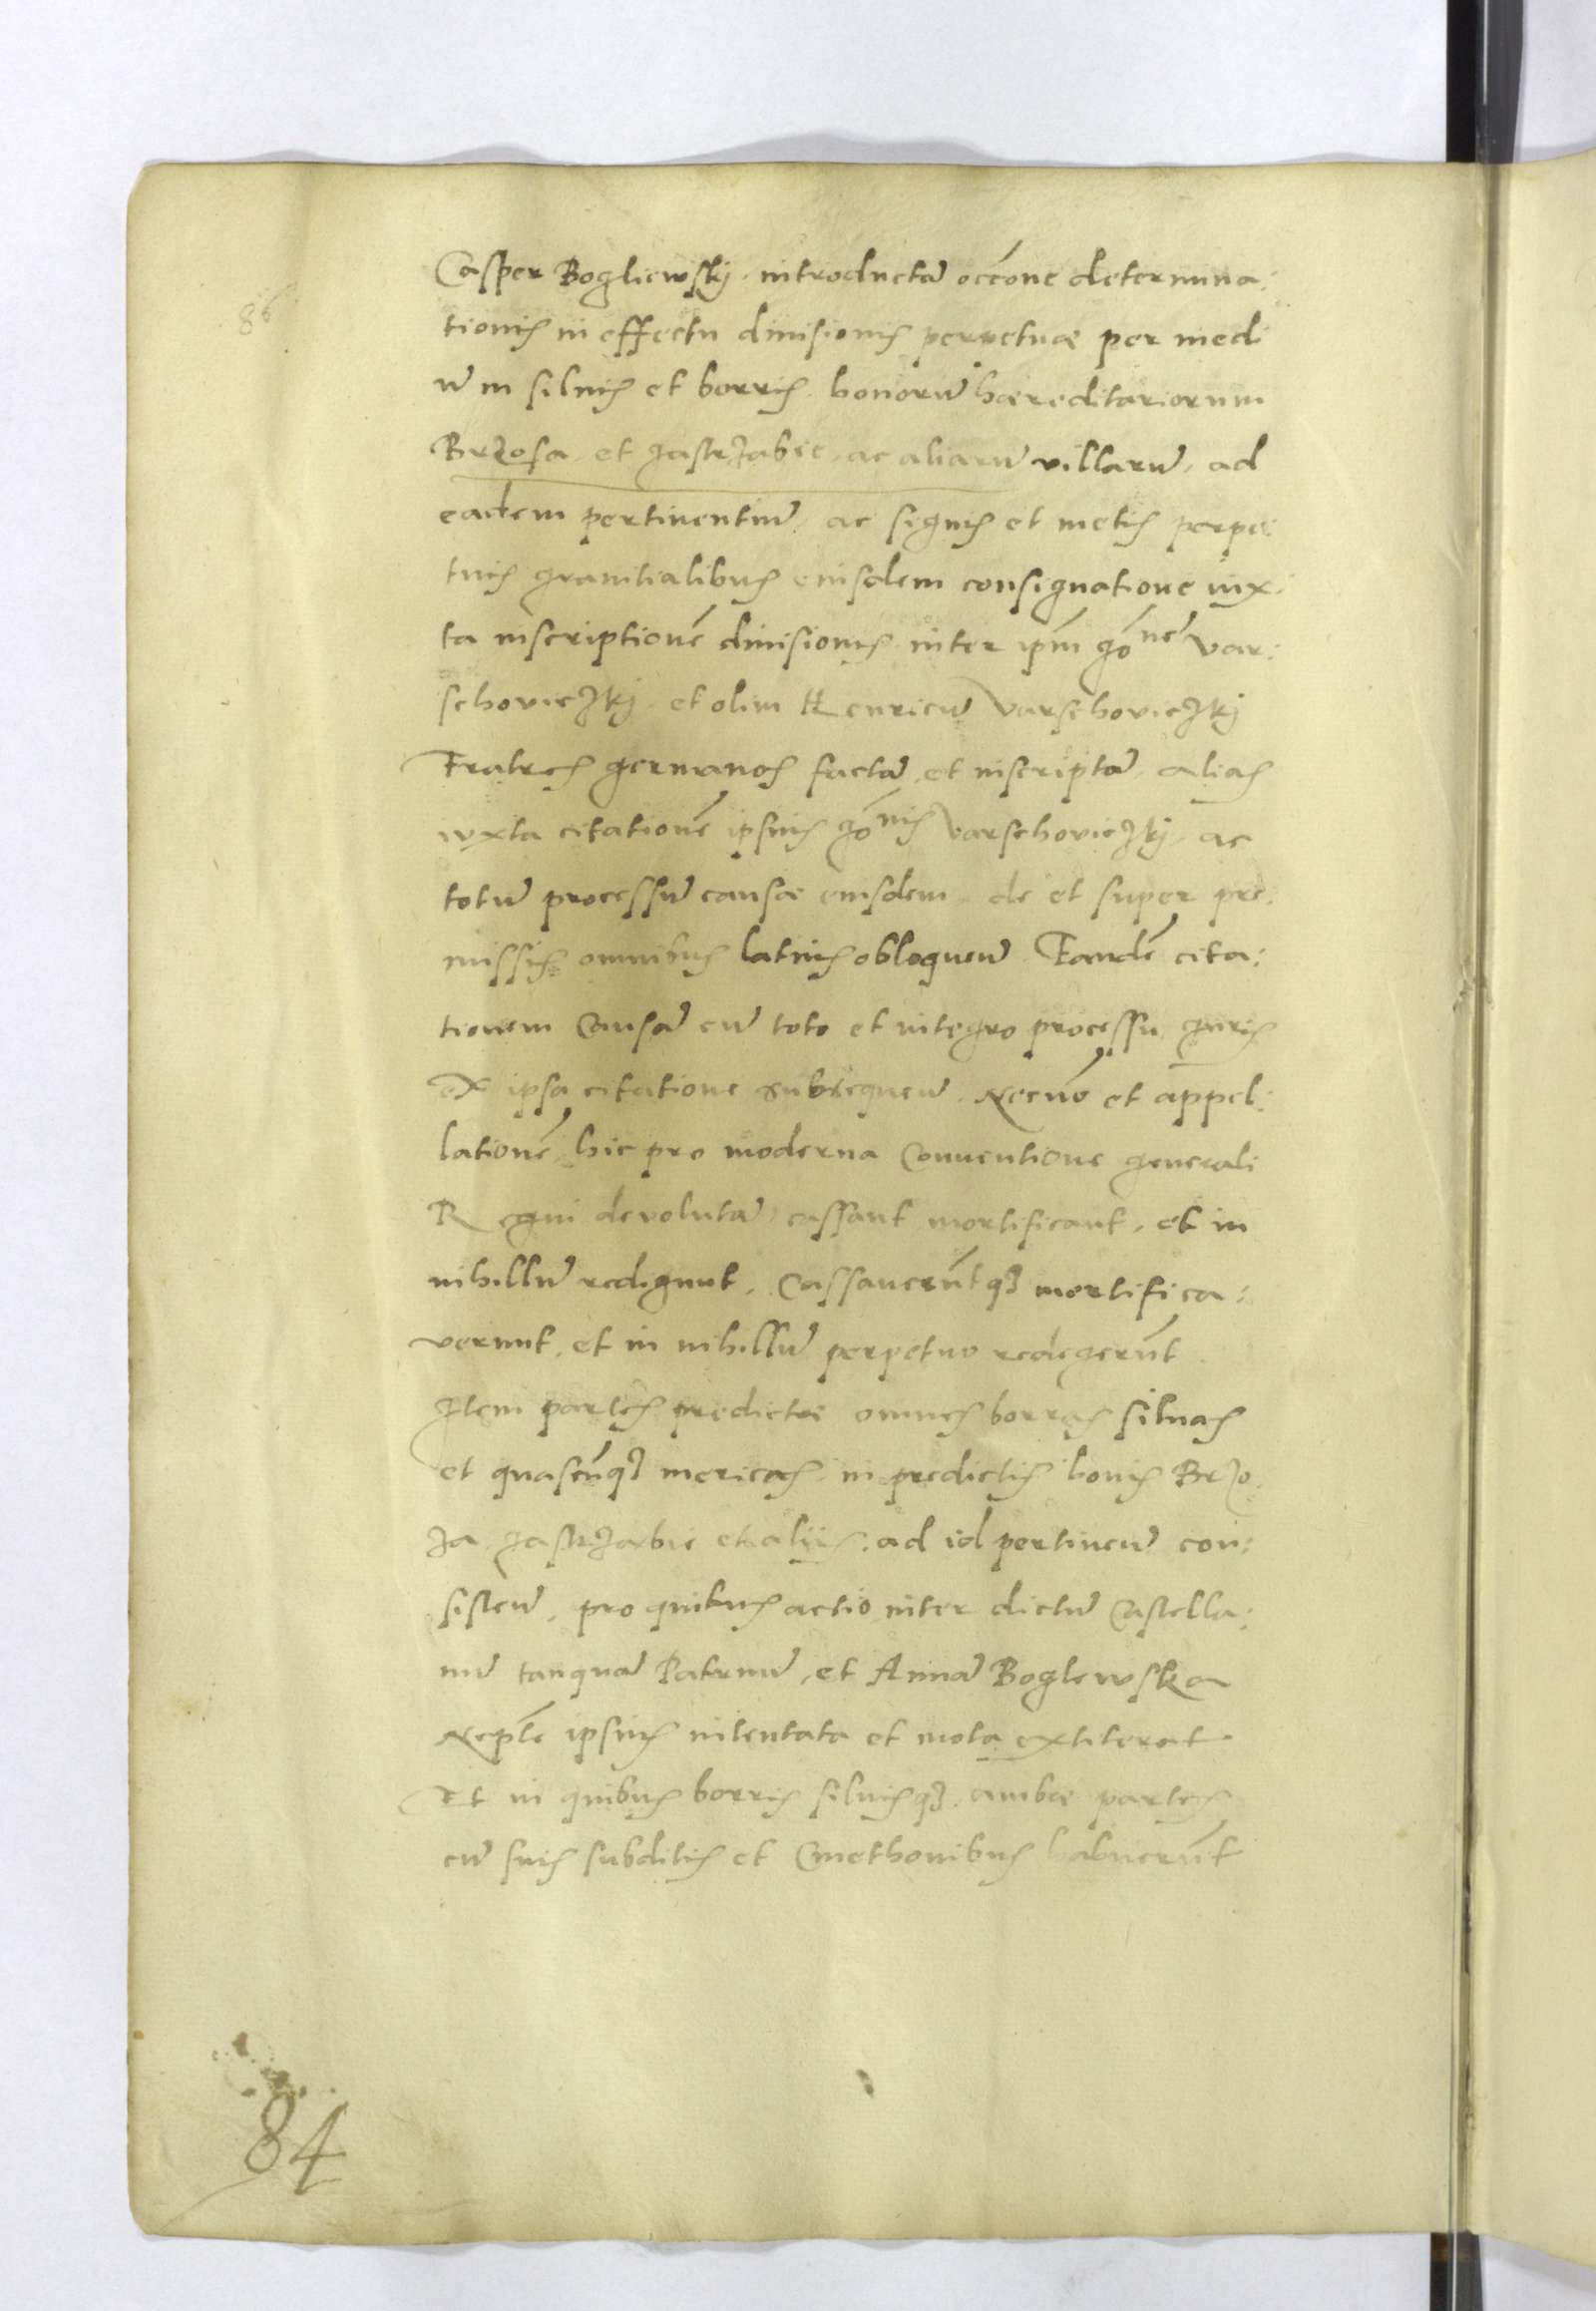 86
Casper Bogliewskij introductā occōne determina:
tionis in effectu diuisionis perpetuæ per medi
ū in siluis et borris bonorū hæreditariorum
Brzosa et Jastrzabie ac aliarū villarū ad
eadem pertinentiū ac signis et metis perpe:
tuis granitialibus eiusdem consignatione iux:
ta inscriptionē diuisionis inter ipm̄ gōnē Var:
schouiczkj et olim Henricū Varschouiczkj
Fratres germanos factā et inscriptā alias
iuxta citationē ipsius gōnis Varschouiczkj ac
totū processū causæ eiusdem de et super pre:
missis omnibus latius obloquen̄ Eandē cita:
tionem Causā cū toto et integro processu Juris
ex ipsa citatione subsequen̄ Necnō et appel:
lationē hic pro moderna Conuentione generali
Regni deuolutā cassant mortificant et in
nihillū redigunt Cassauerūntq3 mortifica:
verunt et in nihillū perpetuo redegerūnt
Item partes predictæ omnes borras siluas
et quascūnq3 mericas in predictis bonis Brzo
za Jastrzabie et alijs ad id pertinen̄ con:
sisten̄ pro quibus actio inter dictū Castella:
nū tanquā Patruū et Annā Boglewska
Neptē ipsius intentata et mota extiterat
Et in quibus borris siluisq3 ambæ partes
cū suis subditis et Cmethonibus habuerūnt
84